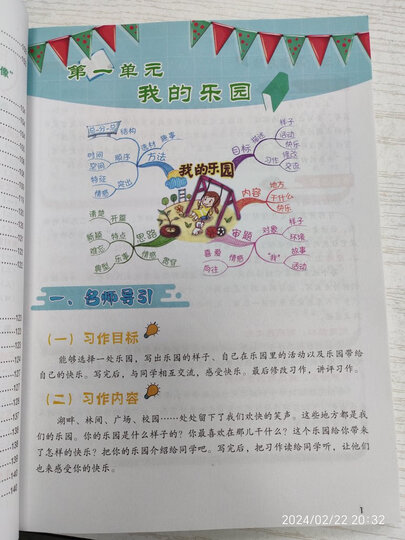 像”
第一单元
我的乐园
总-分-总
结构
选材
趣事
时间
空间
顺序
方法
特征
情感
突出
我的乐园
目标
描述
样子
活动
快乐
习作
修改
交流
内容
地方
干什么
快乐
清楚
开题
新颖
特点
思路
难忘
典型
乐事
情感
审题
对象
样子
环境
故事
喜爱
向往
情感
“我”
活动
一、名师导引
（一）习作目标
能够选择一处乐园，写出乐园的样子、自己在乐园里的活动以及乐园带给
自己的快乐。写完后，与同学相互交流，感受快乐。最后修改习作，讲评习作。
（二）习作内容
湖畔、林间、广场、校园……处处留下了我们欢快的笑声。这些地方都是我
们的乐园。你的乐园是什么样子的？你最喜欢在那儿干什么？这个乐园给你带来
了怎样的快乐？把你的乐园介绍给同学吧。写完后，把习作读给同学听，让他们
也来感受你的快乐。
1
2024/02/22 20:32